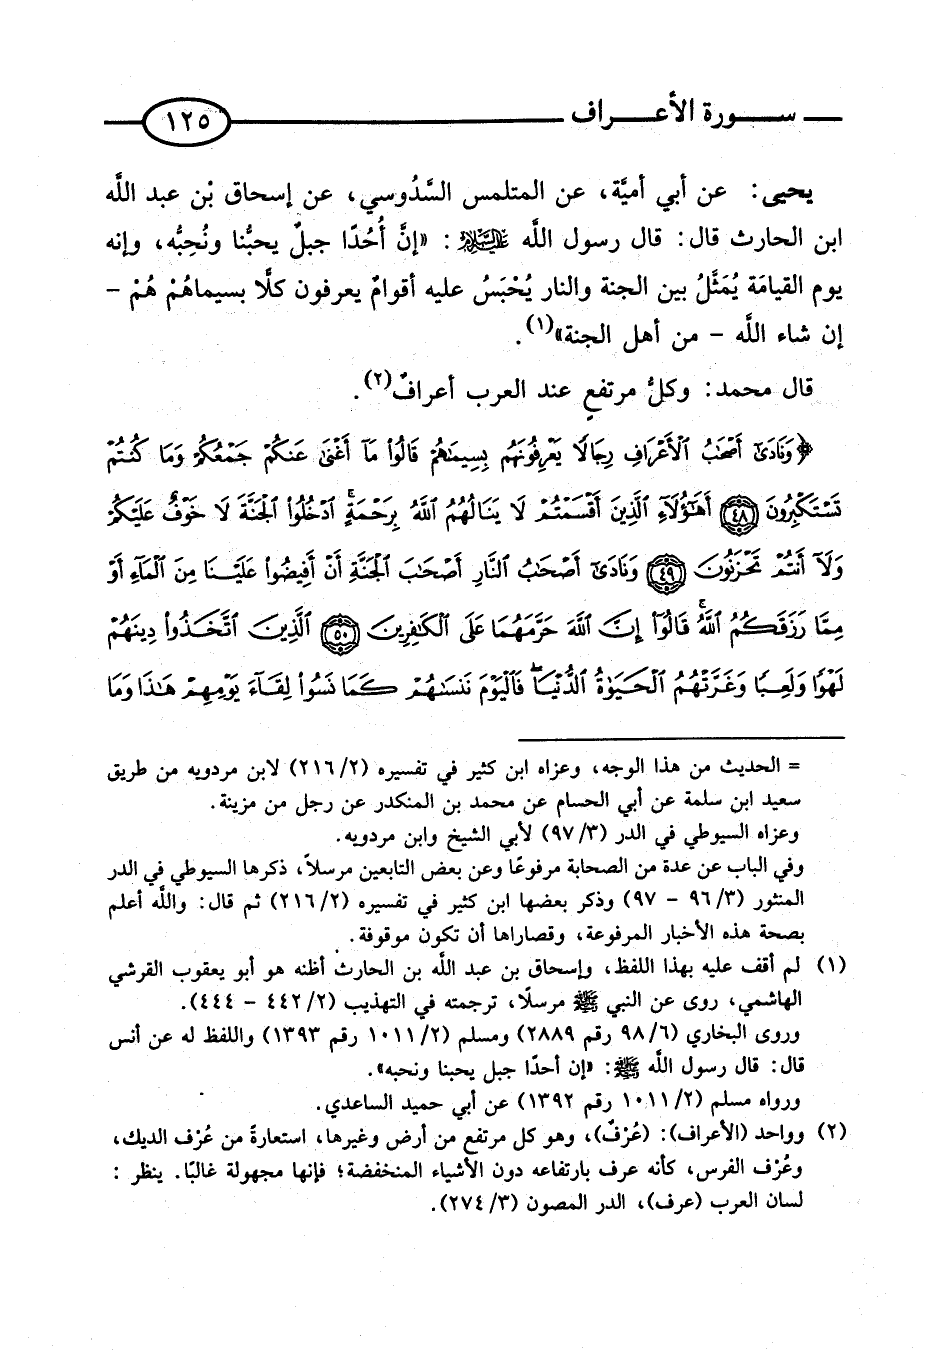 سورة الأعراف ١٢٥
يحيى: عن أبي أميَّة، عن المتلمس السَّدُوسي، عن إسحاق بْن عبد اللَّه
ابن الحارث قال: قال رسول اللَّه ﷺ: «إنَّ أُحُدًا جبلٌ يحبُّنا ونُحِبُّه، وإنه
يوم القيامَة يُمَثَّلُ بين الجنة والنار يُحْبَسُ عليه أقوامٌ يعرفون كلًّا بسيماهُمْ هُمْ -
إن شاء اللَّه - من أهل الجنة»(١).
قال محمد: وكلُّ مرتفعٍ عند العرب أعرافٌ(٢).
﴿وَنَادَىٰٓ أَصْحَٰبُ ٱلْأَعْرَافِ رِجَالًا يَعْرِفُونَهُم بِسِيمَىٰهُمْ قَالُوا۟ مَآ أَغْنَىٰ عَنكُمْ جَمْعُكُمْ وَمَا كُنتُمْ
تَسْتَكْبِرُونَ ٤٨ أَهَٰٓؤُلَآءِ ٱلَّذِينَ أَقْسَمْتُمْ لَا يَنَالُهُمُ ٱللَّهُ بِرَحْمَةٍ ۚ ٱدْخُلُوا۟ ٱلْجَنَّةَ لَا خَوْفٌ عَلَيْكُمْ
وَلَآ أَنتُمْ تَحْزَنُونَ ٤٩ وَنَادَىٰٓ أَصْحَٰبُ ٱلنَّارِ أَصْحَٰبَ ٱلْجَنَّةِ أَنْ أَفِيضُوا۟ عَلَيْنَا مِنَ ٱلْمَآءِ أَوْ
مِمَّا رَزَقَكُمُ ٱللَّهُ ۚ قَالُوٓا۟ إِنَّ ٱللَّهَ حَرَّمَهُمَا عَلَى ٱلْكَٰفِرِينَ ٥٠ ٱلَّذِينَ ٱتَّخَذُوا۟ دِينَهُمْ
لَهْوًا وَلَعِبًا وَغَرَّتْهُمُ ٱلْحَيَوٰةُ ٱلدُّنْيَا ۚ فَٱلْيَوْمَ نَنسَىٰهُمْ كَمَا نَسُوا۟ لِقَآءَ يَوْمِهِمْ هَٰذَا وَمَا
= الحديث من هذا الوجه، وعزاه ابن كثير في تفسيره (٢/٢١٦) لابن مردويه من طريق
سعيد ابن سلمة عن أبي الحسام عن محمد بن المنكدر عن رجل من مزينة.
وعزاه السيوطي في الدر (٣/٩٧) لأبي الشيخ وابن مردويه.
وفي الباب عن عدة من الصحابة مرفوعًا وعن بعض التابعين مرسلاً، ذكرها السيوطي في الدر
المنثور (٣/٩٦ - ٩٧) وذكر بعضها ابن كثير في تفسيره (٢/٢١٦) ثم قال: واللَّه أعلم
بصحة هذه الأخبار المرفوعة، وقصاراها أن تكون موقوفة.
(١) لم أقف عليه بهذا اللفظ، وإسحاق بن عبد اللَّه بن الحارث أظنه هو أبو يعقوب القرشي
الهاشمي، روى عن النبي ﷺ مرسلًا، ترجمته في التهذيب (٢/٤٤٢ - ٤٤٤).
وروى البخاري (٦/٩٨ رقم ٢٨٨٩) ومسلم (٢/١٠١١ رقم ١٣٩٣) واللفظ له عن أنس
قال: قال رسول اللَّه ﷺ: «إن أحدًا جبل يحبنا ونحبه».
ورواه مسلم (٢/١٠١١ رقم ١٣٩٢) عن أبي حميد الساعدي.
(٢) وواحد (الأعراف): (عُرْفٌ)، وهو كل مرتفع من أرض وغيرها، استعارةً من عُرْف الديك،
وعُرْف الفرس، كأنه عرف بارتفاعه دون الأشياء المنخفضة؛ فإنها مجهولة غالبًا. ينظر:
لسان العرب (عرف)، الدر المصون (٣/٢٧٤).